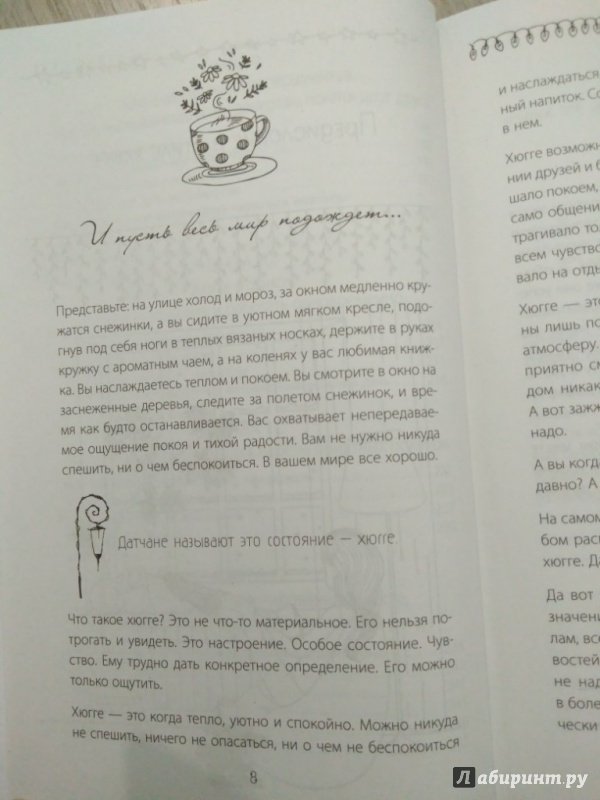 И пусть весь мир подождет...
Представьте: на улице холод и мороз, за окном медленно кру-
жатся снежинки, а вы сидите в уютном мягком кресле, подо-
гнув под себя ноги в теплых вязаных носках, держите в руках
кружку с ароматным чаем, а на коленях у вас любимая книж-
ка. Вы наслаждаетесь теплом и покоем. Вы смотрите в окно на
заснеженные деревья, следите за полетом снежинок, и вре-
мя как будто останавливается. Вас охватывает непередавае-
мое ощущение покоя и тихой радости. Вам не нужно никуда
спешить, ни о чем беспокоиться. В вашем мире все хорошо.
Датчане называют это состояние — хюгге.
Что такое хюгге? Это не что-то материальное. Его нельзя по-
трогать и увидеть. Это настроение. Особое состояние. Чув-
ство. Ему трудно дать конкретное определение. Его можно
только ощутить.
Хюгге — это когда тепло, уютно и спокойно. Можно никуда
не спешить, ничего не опасаться, ни о чем не беспокоиться
8
и наслаждаться
ный напиток. Со
в нем.
Хюгге возможн
нии друзей и б
шало покоем,
само общени
трагивало то
всем чувство
вало на отды
Хюгге — это
ны лишь по
атмосферу.
приятно см
дом никак
А вот зажж
надо.
А вы когда
давно? А
На самом
бом расп
хюгге. Да
Да вот
значени
лам, все
востей
не над
в боле
чески
Лабиринт.ру